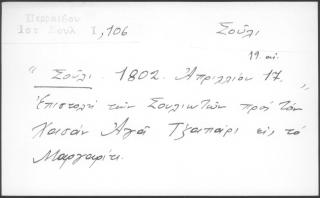 Περραιβου
Ιστ Σουλ Ι, 106
Σοῦλι
19. αι.
"Σοῦλι. 1802. Ἀπριλλίου 17.
Ἐπιστολὴ τῶν Σουλιωτῶν πρὸς τὸν
Χασὰν Ἀγᾶ Τζαπάρι εἰς τὸ
Μαργαρίτι.